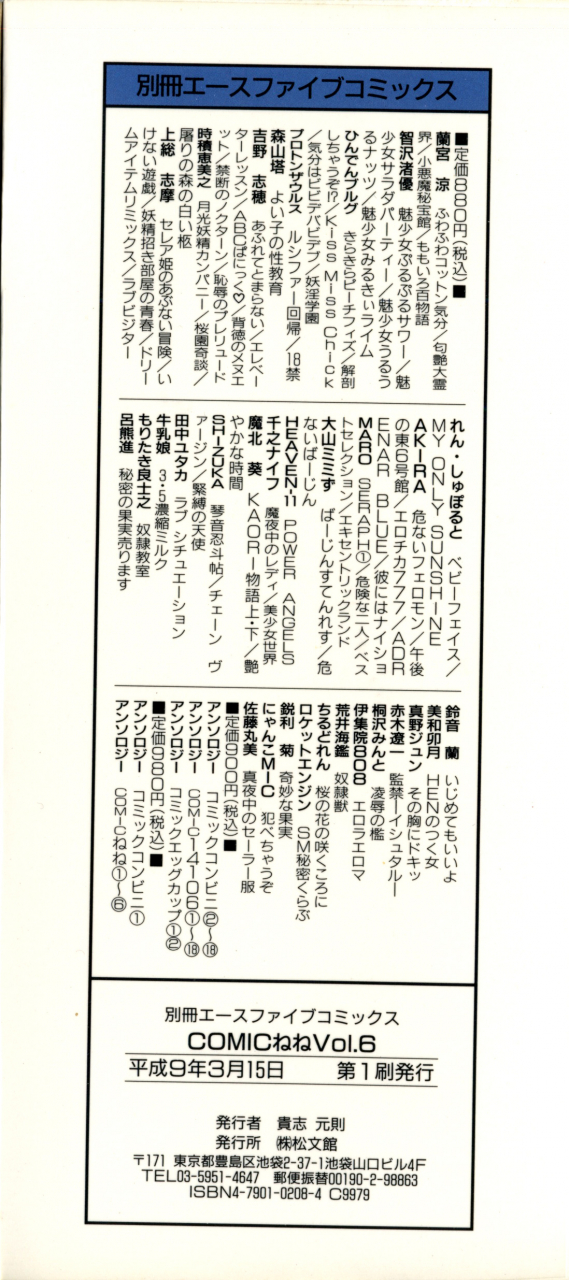 別冊エースファイブコミックス
■定価880円(税込)■
蘭宮 涼 ふわふわコットン気分/匂艶大霊
界/小悪魔秘宝館/ももいろ百物語
智沢渚優 魅少女ぷるぷるサワー/魅
少女サラダパーティー/魅少女うるう
るナッツ/魅少女みるきぃライム
ひんでんブルグ きらきらピーチフィズ/解剖
しちゃうぞ!?/Kiss Miss Chick
/気分はビビデバビデブ/妖淫学園
プロトンザウルス ルシファー回帰/18禁
森山塔 よい子の性教育
吉野 志穂 あふれてとまらない/エレベー
ターレッスン/ABCぱにっく♡/背徳のメヌエ
ット/禁断のノクターン/恥辱のプレリュード
時積恵美之 月光妖精カンパニー/桜園奇談/
屠りの森の白い柩
上総 志摩 セレア姫のあぶない冒険/い
けない遊戯/妖精招き部屋の青春/ドリー
ムアイテムリミックス/ラブビジター
れん・しゅぽると ベビーフェイス/
MY ONLY SUNSHINE
AKIRA 危ないフェロモン/午後
の東6号館/エロチカ777/ADR
ENAR BLUE/彼にはナイショ
MARO SERAPH①/危険な二人/ベス
トセレクション/エキセントリックランド
大山ミミず ばーじんすてんれす/危
ないばーじん
HEAVEN-11 POWER ANGELS
千之ナイフ 魔夜中のレディ/美少女世界
魔北 葵 KAORI物語上・下/艶
やかな時間
SHIZUKA 琴音忍斗帖/チェーン ヴ
ァージン/緊縛の天使
田中ユタカ ラブ シチュエーション
牛乳娘 3・5濃縮ミルク
もりたき良士之 奴隷教室
呂熊進 秘密の果実売ります
鈴音 蘭 いじめてもいいよ
美和卯月 HENのつく女
真野ジュン その胸にドキッ
赤木遼一 監禁―イシュタル―
桐沢みんと 凌辱の檻
伊集院808 エロラエロマ
荒井海鑑 奴隷獣
ちるどれん 桜の花の咲くころに
ロケットエンジン SM秘密くらぶ
鋭利 菊 奇妙な果実
にゃんこMIC 犯べちゃうぞ
佐藤丸美 真夜中のセーラー服
■定価900円(税込)■
アンソロジー コミックコンビニ②～⑱
アンソロジー COMIC1410 6①～⑱
アンソロジー コミックエッグカップ①②
■定価980円(税込)■
アンソロジー コミックコンビニ①
アンソロジー COMICねね①～⑥
別冊エースファイブコミックス
COMICねねVol.6
平成9年3月15日 第1刷発行
発行者 貴志 元則
発行所 ㈱松文館
〒171 東京都豊島区池袋2-37-1池袋山口ビル4F
TEL03-5951-4647 郵便振替00190-2-98863
ISBN4-7901-0208-4 C9979